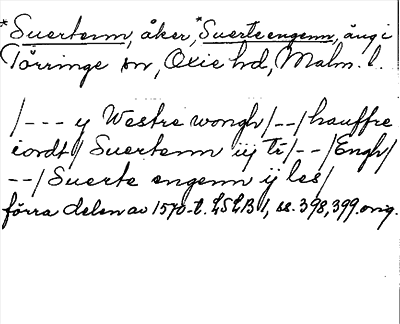 *Suertenn, åker, *Suerte engenn, äng i
Törringe sn, Oxie hd, Malm. l.
/--- y Westre wongh/--/hauffre
iordt/ Suertenn iij tr/--/Engh/
--/ Suerte engenn ij les/
förra delen av 1570-t. LSLB 1, ss. 398, 399. orig.